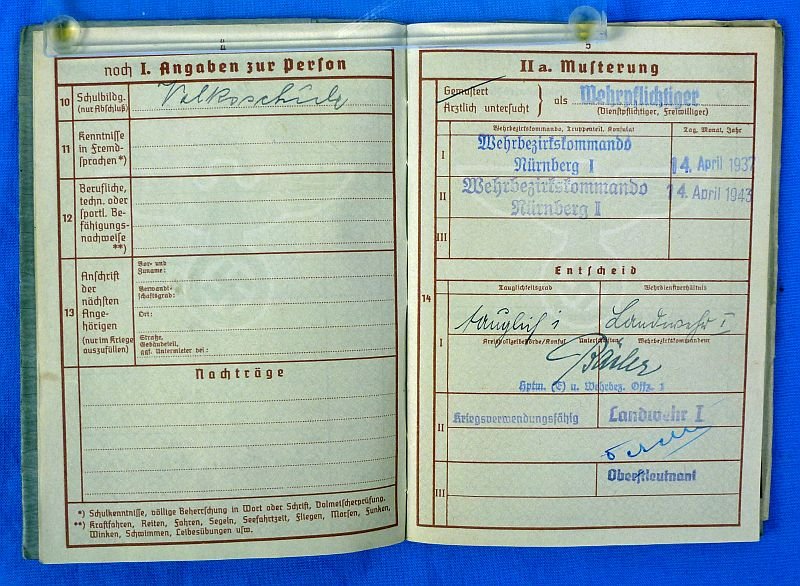 noch I. Angaben zur Person
10 Schulbildg. (nur Abschluß)
Volksschule
11 Kenntnisse in Fremd-
sprachen*)
12 Berufliche,
techn. oder
sportl. Be-
fähigungs-
nachweise
**)
13 Anschrift
der
nächsten
Ange-
hörigen
(nur im Kriege
auszufüllen)
Vor- und
Zuname:
Verwandt-
schaftsgrad:
Ort:
Straße,
Gebäudeteil,
ggf. Untermieter bei:
Nachträge
*) Schulkenntnisse, völlige Beherrschung in Wort oder Schrift, Dolmetscherprüfung.
**) Kraftfahren, Reiten, Fahren, Segeln, Seefahrtzeit, Fliegen, Morsen, Funken,
Winken, Schwimmen, Leibesübungen usw.
5
II a. Musterung
Gemustert
Ärztlich untersucht } als Wehrpflichtiger
(Dienstpflichtiger, Freiwilliger)
Wehrbezirkskommando, Truppenteil, Konsulat
Tag, Monat, Jahr
I Wehrbezirkskommando
Nürnberg I
14. April 1937
II Wehrbezirkskommando
Nürnberg I
14. April 1943
III
14 Entscheid
Tauglichkeitsgrad
Wehrdienstverhältnis
I tauglich 1 Landwehr I
Kreispolizeibehörde/Konsul Unterschriften Wehrbezirkskommandeur
Hptm. (E) u. Wehrbez. Offz. 1
II Kriegsverwendungsfähig Landwehr I
Oberstleutnant
III